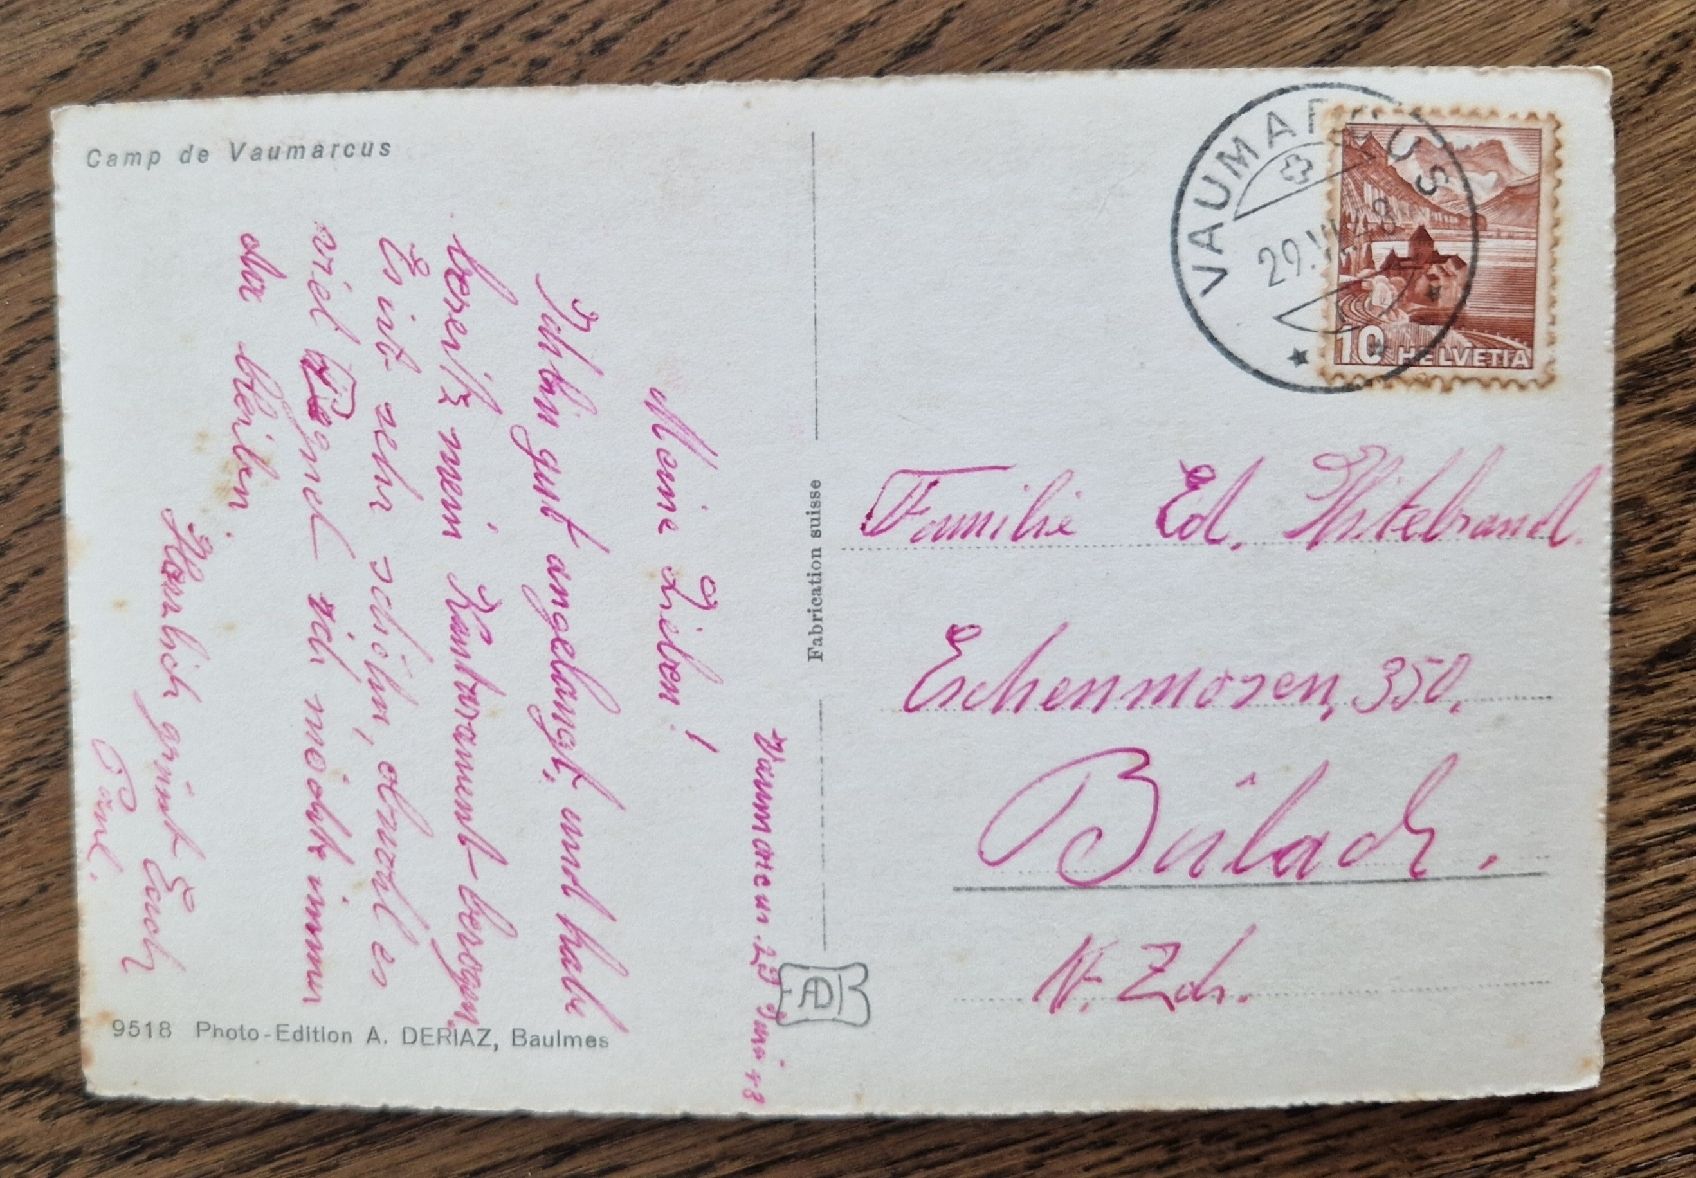 Camp de Vaumarcus
Vaumarcus 29 Juni 43
Meine Lieben!
Ich bin gut angelangt, und habe
bereits mein Kantonnement bezogen.
Es ist sehr schön, obwohl es
viel Regnet ich möcht immer
da bleiben.
Herzlich grüsst Euch
Paul.
9518 Photo-Edition A. DERIAZ, Baulmes
Fabrication suisse
AD
VAUMARCUS
29.VI.43
10 HELVETIA
Familie Ed. Hitebrand.
Eschenmosen, 350.
Bülach.
Zch.